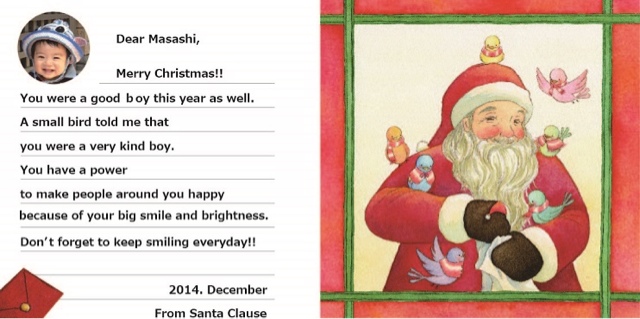 Dear Masashi,
Merry Christmas!!
You were a good boy this year as well.
A small bird told me that
you were a very kind boy.
You have a power
to make people around you happy
because of your big smile and brightness.
Don't forget to keep smiling everyday!!
2014. December
From Santa Clause